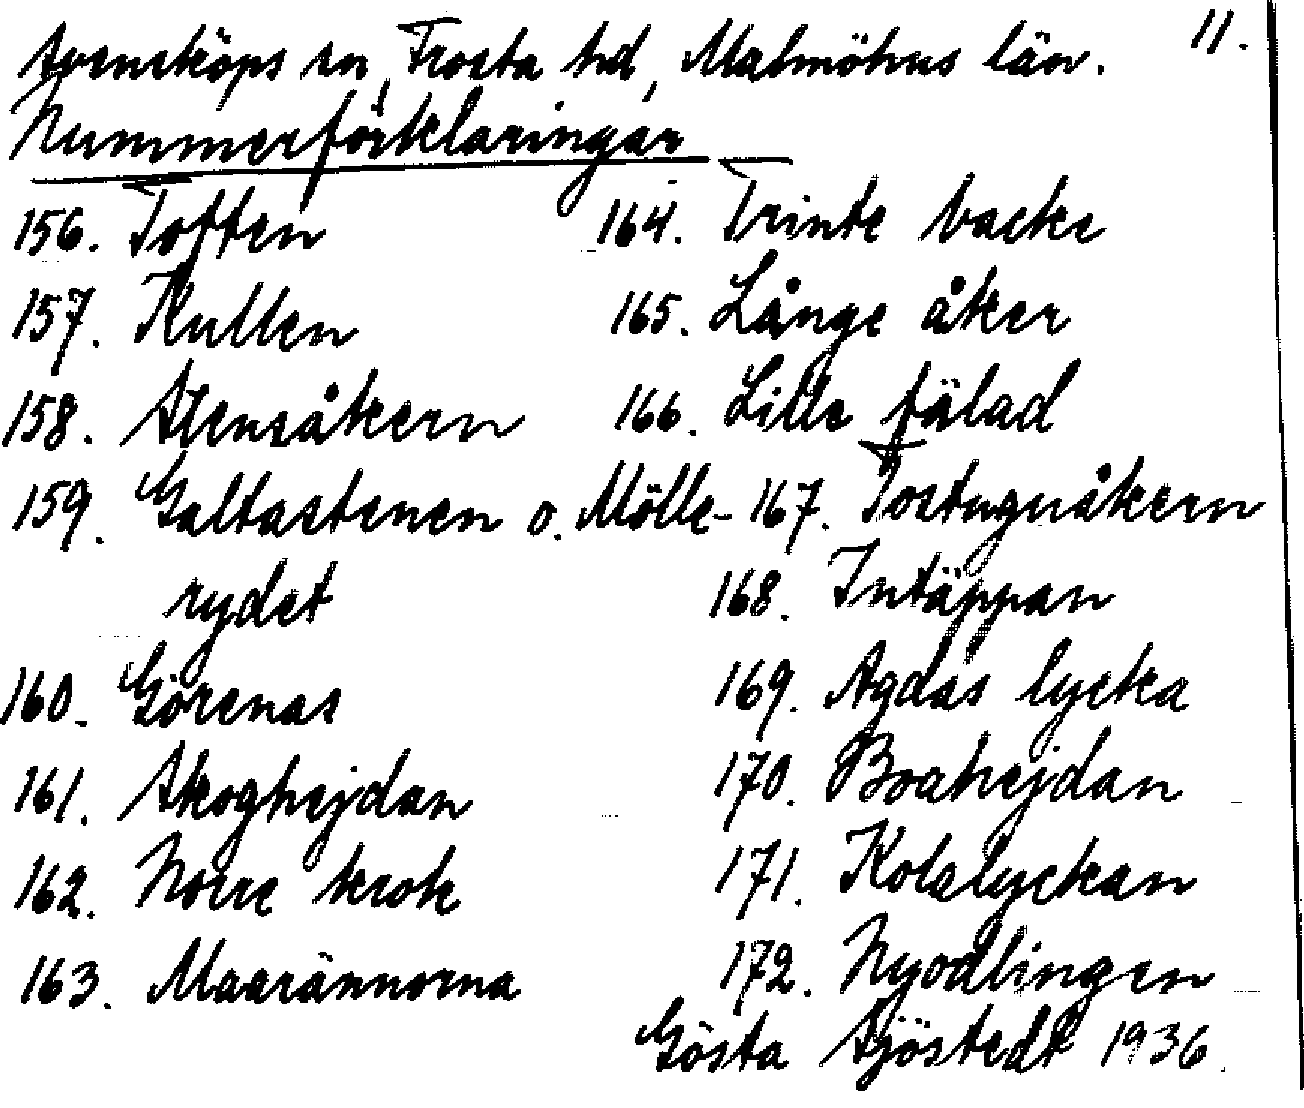 Svensköps sn, Frosta hd, Malmöhus län. 11.
Nummerförklaringar
156. Toften
157. Kullen
158. Stensåkern
159. Galtastenen o. Mölle-
rydet
160. Görenas
161. Skoghejdan
162. Norre krok
163. Maarännorna
164. Trinte backe
165. Långe åker
166. Lille fälad
167. Tostuguåkern
168. Intäppan
169. Agdas lycka
170. Boahejdan
171. Kolalyckan
172. Nyodlingen
Gösta Sjöstedt 1936.